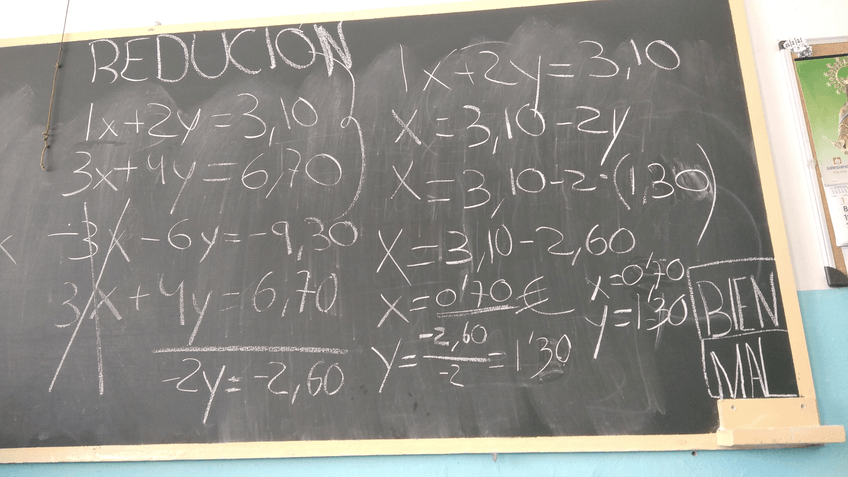 REDUCIÓN
1x+2y=3,10
3x+4y=6,70
-3x-6y=-9,30
3x+4y=6,70
-2y=-2,60
1x+2y=3,10
x=3,10-2y
x=3,10-2·(1,30)
x=3,10-2,60
x=0'70 €
y=-2,60/-2=1'30
x=0'70
y=1'30
BIEN
MAL